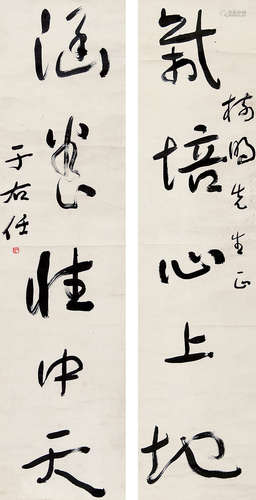 氣培心上地
先生正
涵養性中天
于右任